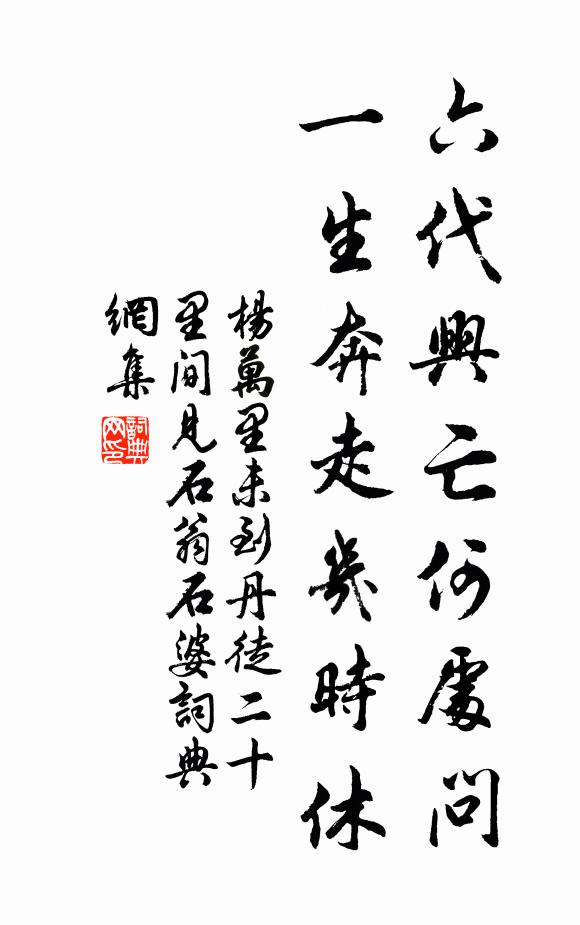 六代興亡何處問
一生奔走幾時休
楊萬里未到丹徒二十
里間見石翁石婆詞典
網集
詞典
网印